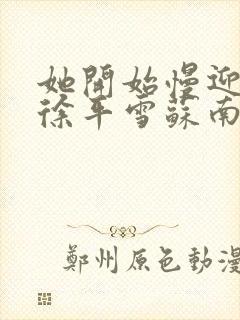 她開始慢迎
徐平雪蘇南
鄭州原色動漫